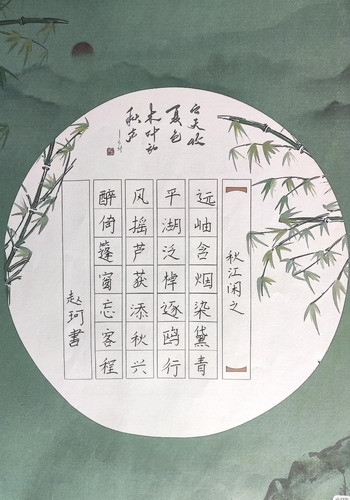 云天收
夏色
木叶动
秋声
秋江闲之
远岫含烟染黛青
平湖泛棹逐鸥行
风摇芦荻添秋兴
醉倚篷窗忘客程
赵珂書